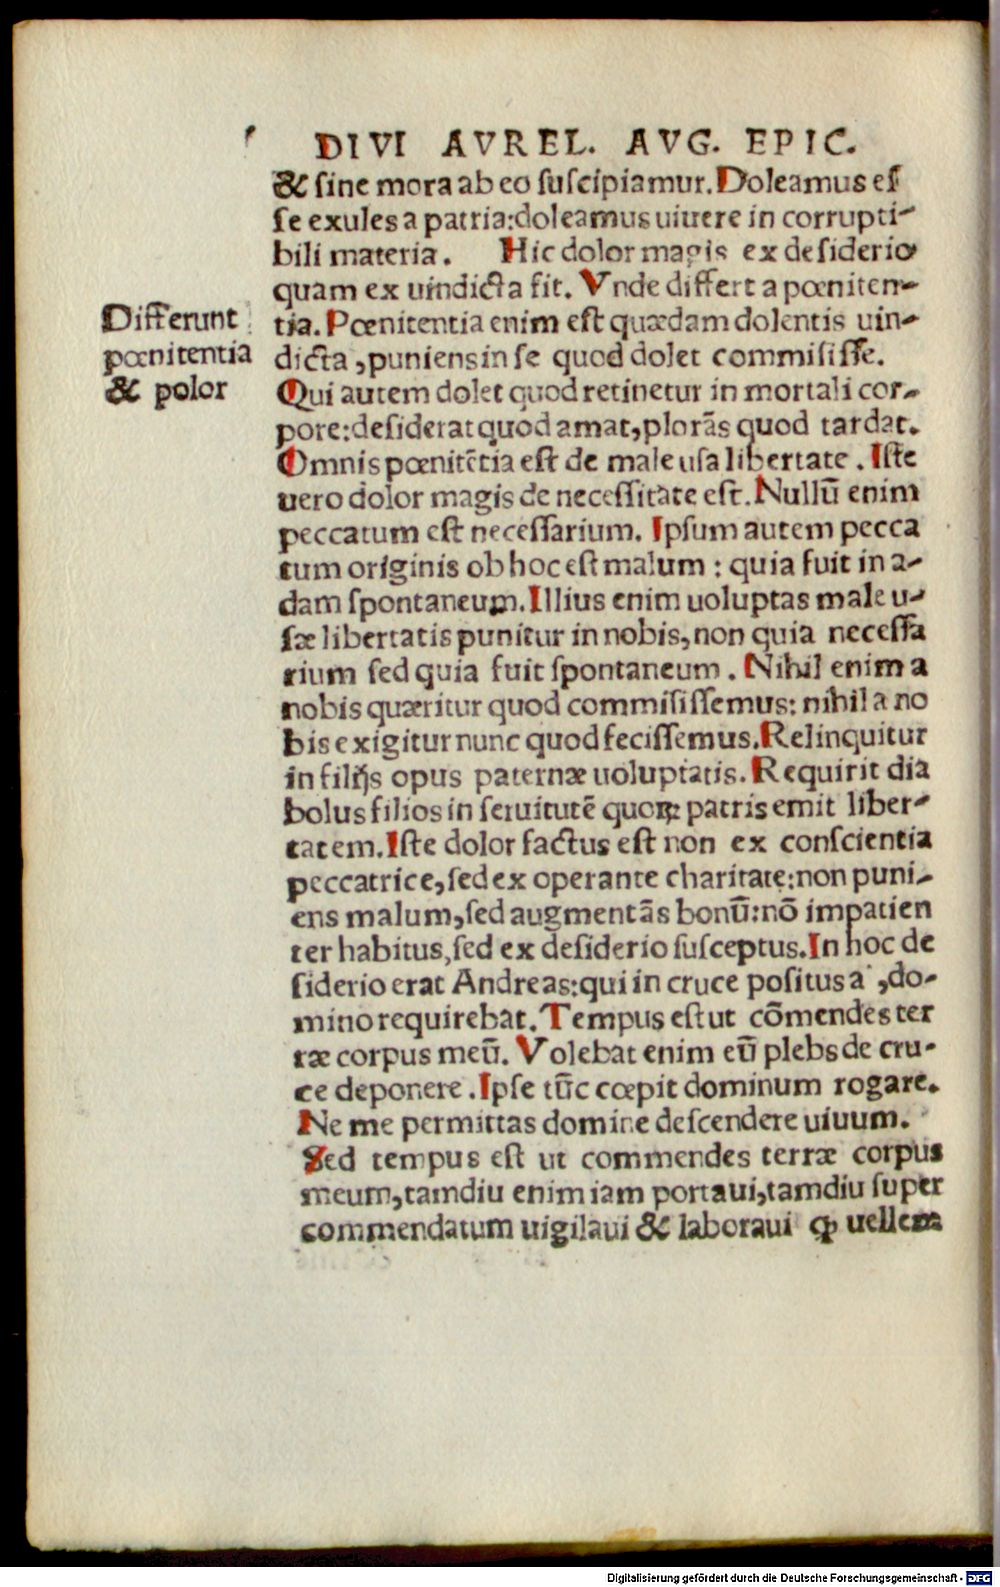 DIVI AVREL. AVG. EPIC.
& sine mora ab eo suscipiamur. Doleamus es
se exules a patria: doleamus uiuere in corrupti-
bili materia. Hic dolor magis ex desiderio
quam ex uindicta fit. Vnde differt a pœniten-
tia. Pœnitentia enim est quædam dolentis uin-
dicta, puniens in se quod dolet commisisse.
Qui autem dolet quod retinetur in mortali cor-
pore: desiderat quod amat, plorãs quod tardat.
Omnis pœnitẽtia est de male usa libertate. Iste
uero dolor magis de necessitate est. Nullũ enim
peccatum est necessarium. Ipsum autem pecca
tum originis ob hoc est malum: quia fuit in a-
dam spontaneum. Illius enim uoluptas male u-
sæ libertatis punitur in nobis, non quia necessa
rium sed quia fuit spontaneum. Nihil enim a
nobis quæritur quod commisissemus: nihil a no
bis exigitur nunc quod fecissemus. Relinquitur
in filijs opus paternæ uoluptatis. Requirit dia
bolus filios in seruitutẽ quoꝝ patris emit liber-
tatem. Iste dolor factus est non ex conscientia
peccatrice, sed ex operante charitate: non puni-
ens malum, sed augmentãs bonũ: nõ impatien
ter habitus, sed ex desiderio susceptus. In hoc de
siderio erat Andreas: qui in cruce positus a, do-
mino requirebat. Tempus est ut cõmendes ter
ræ corpus meũ. Volebat enim eũ plebs de cru-
ce deponere. Ipse tũc cœpit dominum rogare.
Ne me permittas domine descendere uiuum.
Sed tempus est ut commendes terræ corpus
meum, tamdiu enim iam portaui, tamdiu super
commendatum uigilaui & laboraui ꝙ uellem
Differunt
pœnitentia
& polor
Digitalisierung gefördert durch die Deutsche Forschungsgemeinschaft - DFG